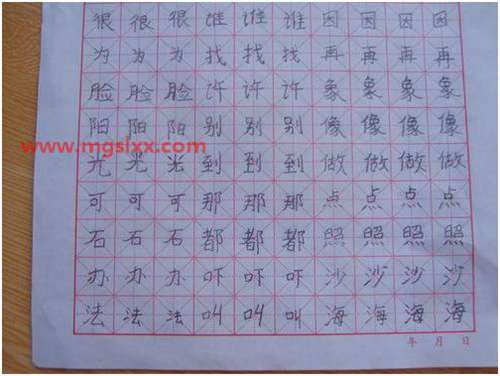 很很很谁谁谁因因因因
为为为找找找再再再再
脸脸脸许许许象象象象
阳阳阳别别别像像像像
www.mgslxx.com
光光光到到到做做做做
可可可那那那点点点点
石石石都都都照照照照
办办办吓吓吓沙沙沙沙
法法法叫叫叫海海海海
年 月 日